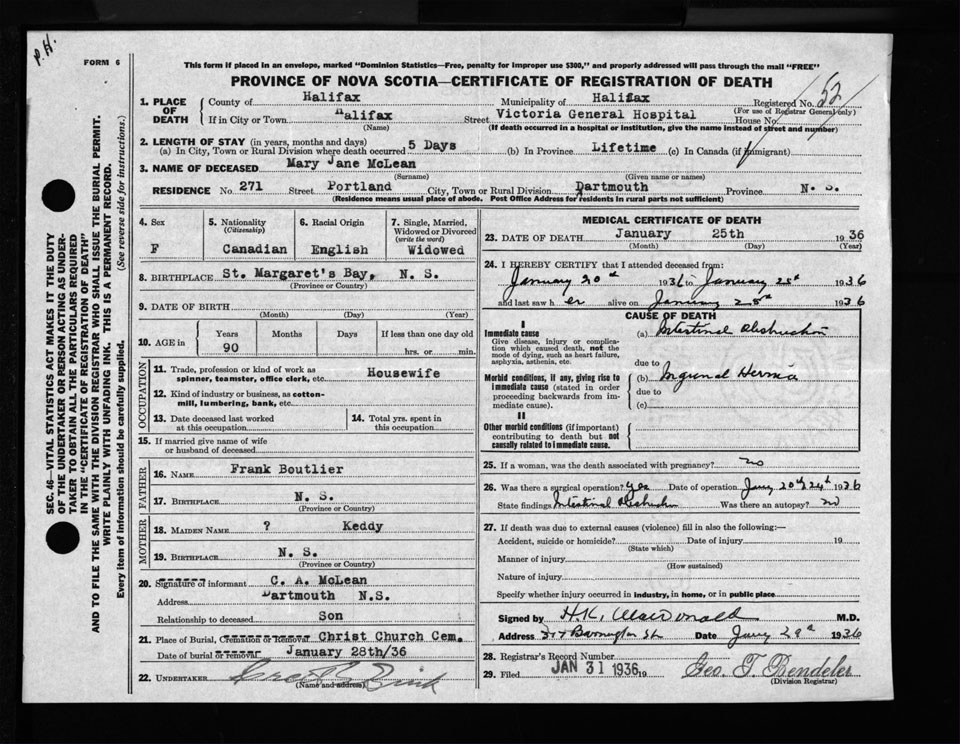 P.H.
FORM 6
This form if placed in an envelope, marked "Dominion Statistics—Free, penalty for improper use $300," and properly addressed will pass through the mail "FREE"
PROVINCE OF NOVA SCOTIA—CERTIFICATE OF REGISTRATION OF DEATH
SEC. 46—VITAL STATISTICS ACT MAKES IT THE DUTY
OF THE UNDERTAKER OR PERSON ACTING AS UNDER-
TAKER TO OBTAIN ALL THE PARTICULARS REQUIRED
IN THE "CERTIFICATE OF REGISTRATION OF DEATH"
AND TO FILE THE SAME WITH THE DIVISION REGISTRAR WHO SHALL ISSUE THE BURIAL PERMIT.
WRITE PLAINLY WITH UNFADING INK. THIS IS A PERMANENT RECORD.
Every item of information should be carefully supplied. (See reverse side for instructions.)
1. PLACE OF DEATH County of Halifax Municipality of Halifax Registered No. 52
(For use of Registrar General only)
If in City or Town Halifax Street Victoria General Hospital House No.
(Name) (If death occurred in a hospital or institution, give the name instead of street and number)
2. LENGTH OF STAY (in years, months and days)
(a) In City, Town or Rural Division where death occurred 5 Days (b) In Province Lifetime (c) In Canada (if immigrant)
3. NAME OF DECEASED Mary Jane McLean
(Surname) (Given name or names)
RESIDENCE No. 271 Street Portland City, Town or Rural Division Dartmouth Province N. S.
(Residence means usual place of abode. Post Office Address for residents in rural parts not sufficient)
4. Sex F
5. Nationality (Citizenship) Canadian
6. Racial Origin English
7. Single, Married, Widowed or Divorced (write the word) Widowed
8. BIRTHPLACE St. Margaret's Bay, N. S.
(Province or Country)
9. DATE OF BIRTH
(Month) (Day) (Year)
10. AGE in Years Months Days If less than one day old
90 hrs. or min.
OCCUPATION
11. Trade, profession or kind of work as
spinner, teamster, office clerk, etc. Housewife
12. Kind of industry or business, as cotton-
mill, lumbering, bank, etc.
13. Date deceased last worked
at this occupation
14. Total yrs. spent in
this occupation
15. If married give name of wife
or husband of deceased
FATHER
16. NAME Frank Boutlier
17. BIRTHPLACE N. S.
(Province or Country)
MOTHER
18. MAIDEN NAME ? Keddy
19. BIRTHPLACE N. S.
(Province or Country)
20. Signature of informant C. A. McLean
Address Dartmouth N.S.
Relationship to deceased Son
21. Place of Burial, Cremation or Removal Christ Church Cem.
Date of burial or removal January 28th/36
22. UNDERTAKER
(Name and address)
MEDICAL CERTIFICATE OF DEATH
23. DATE OF DEATH January 25th 1936
(Month) (Day) (Year)
24. I HEREBY CERTIFY that I attended deceased from:
January 20th 1936 to January 25th 1936
and last saw her alive on January 25th 1936
CAUSE OF DEATH
I
Immediate cause
Give disease, injury or complica-
tion which caused death, not the
mode of dying, such as heart failure,
asphyxia, asthenia, etc.
(a) Intestinal Obstruction
due to
Morbid conditions, if any, giving rise to
immediate cause (stated in order
proceeding backwards from im-
mediate cause).
(b) Inguinal Hernia
due to
(c)
II
Other morbid conditions (if important)
contributing to death but not
causally related to immediate cause.
25. If a woman, was the death associated with pregnancy? no
26. Was there a surgical operation? Yes Date of operation Jany 20th 24th 1936
State findings Intestinal Obstruction Was there an autopsy? no
27. If death was due to external causes (violence) fill in also the following:—
Accident, suicide or homicide? Date of injury 19
(State which)
Manner of injury
(How sustained)
Nature of injury
Specify whether injury occurred in industry, in home, or in public place
Signed by H.K. MacDonald M.D.
Address Barrington St. Date Jany 29th 1936
28. Registrar's Record Number
29. Filed JAN 31 1936 19 Geo. T. Bendeler
(Division Registrar)